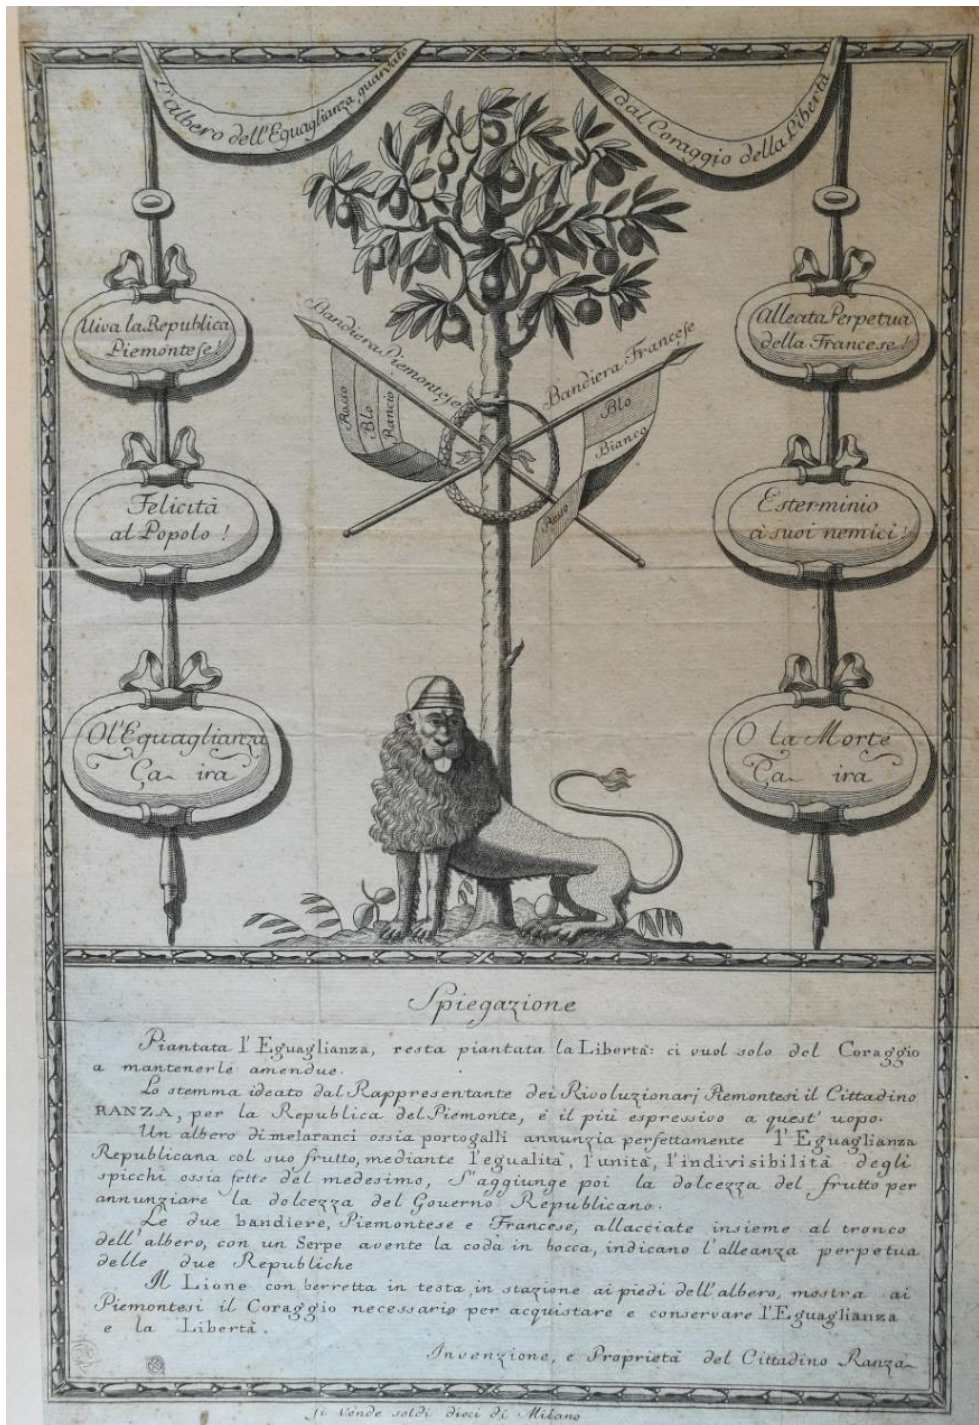 L'albero dell'Eguaglianza guardato
dal Coraggio della Libertà
Viva la Republica
Piemontese!
Alleata Perpetua
della Francese!
Bandiera Piemontese
Rosso
Blo
Rancio
Bandiera Francese
Blo
Bianco
Rosso
Felicità
al Popolo!
Esterminio
ai suoi nemici!
O l'Eguaglianza
Ça ira
O la Morte
Ça ira
Spiegazione
Piantata l'Eguaglianza, resta piantata la Libertà: ci vuol solo del Coraggio
a mantenerle amendue.
Lo stemma ideato dal Rappresentante dei Rivoluzionarj Piemontesi il Cittadino
RANZA, per la Republica del Piemonte, è il più espressivo a quest' uopo.
Un albero di melaranci ossia portogalli annunzia perfettamente l'Eguaglianza
Republicana col suo frutto, mediante l'egualità, l'unità, l'indivisibilità degli
spicchi ossia fette del medesimo, S'aggiunge poi la dolcezza del frutto per
annunziare la dolcezza del Governo Republicano.
Le due bandiere, Piemontese e Francese, allacciate insieme al tronco
dell'albero, con un Serpe avente la coda in bocca, indicano l'alleanza perpetua
delle due Republiche
Il Lione con berretta in testa, in stazione ai piedi dell'albero, mostra ai
Piemontesi il Coraggio necessario per acquistare e conservare l'Eguaglianza
e la Libertà.
Invenzione, e Proprietà del Cittadino Ranza
Si vende soldi dieci di Milano